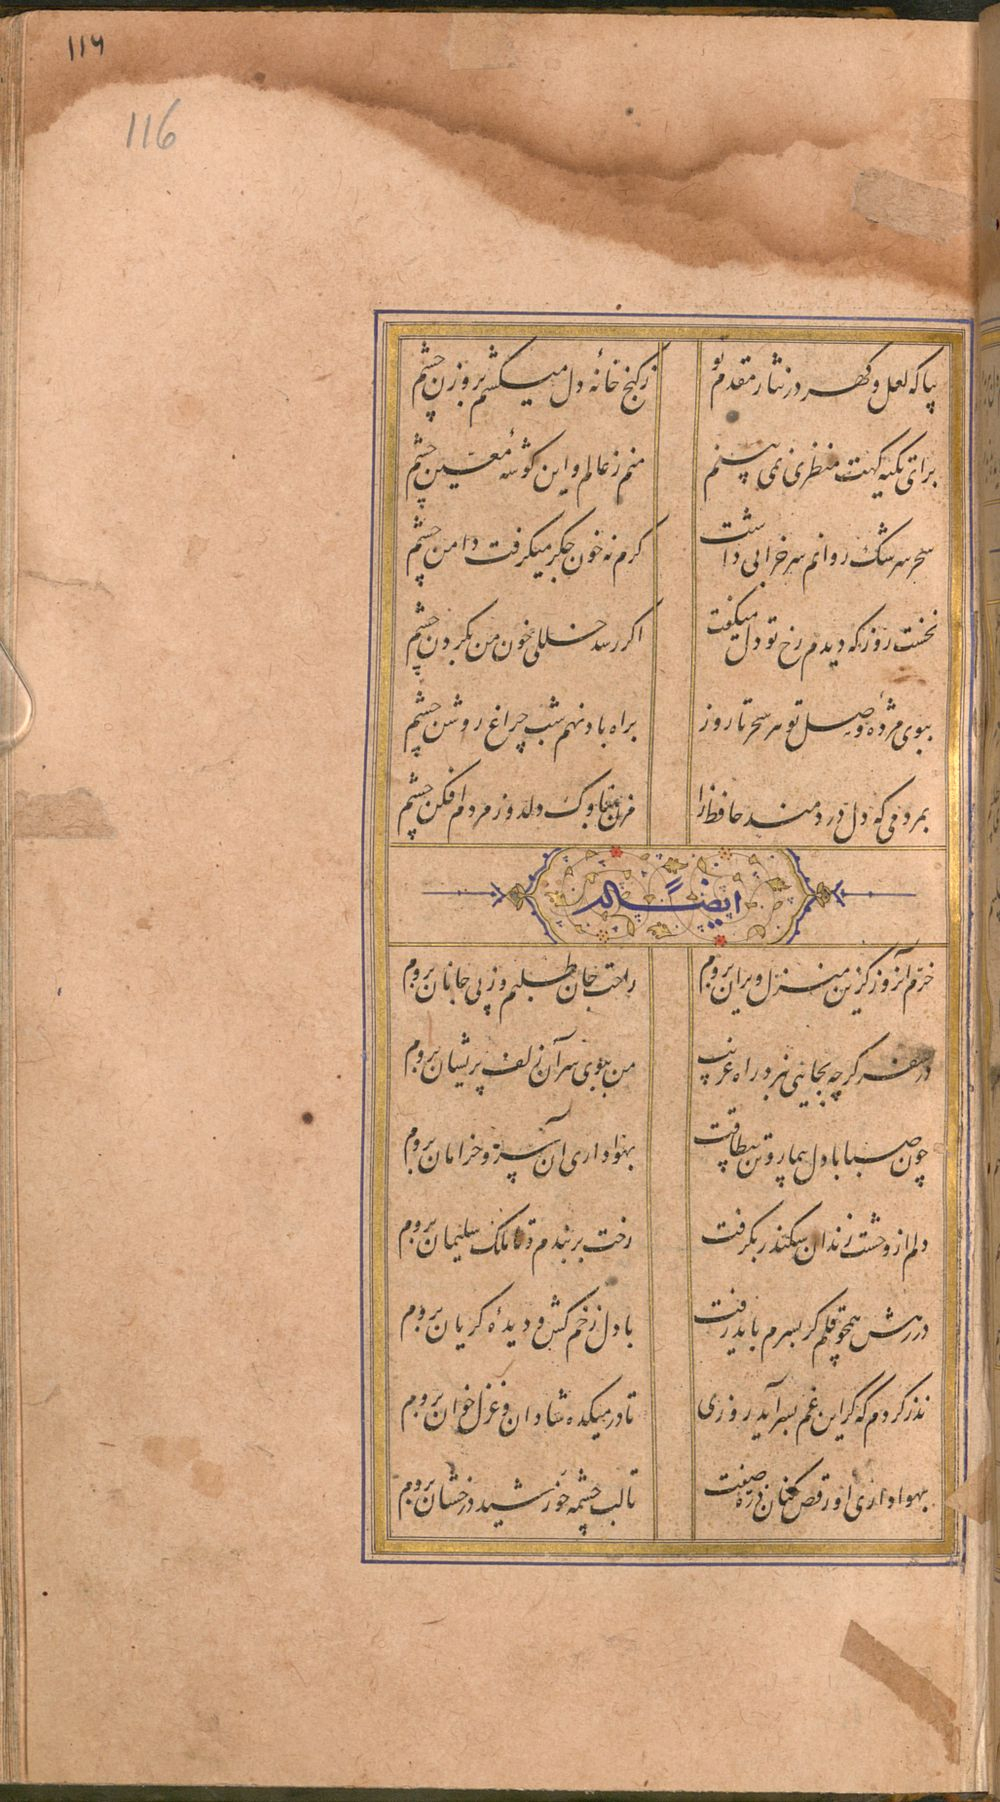 ۱۱۶
116
بیا که لعل و کهر در نثار مقدم تو
ز کنج خانهٔ دل میکشم بروزن چشم
برای تکیه کهت منظری نمی بینم
منم ز عالم و این کوشهٔ معین چشم
سحر سرشک روانم سر خرابی داشت
کرم نه خون جکر میکرفت دامن چشم
نخست روز که دیدم رخ تو دل میکفت
اکر رسد خللی خون من بکردن چشم
ببوی مژدهٔ وصل تو هر سحر تا روز
براه باد نهم شب چراغ روشن چشم
بمردمی که دل دردمند حافظ را
مزن بناوک دلدوز مردم افکن چشم
ایضاً له
خرم آنروز کزین منزل ویران بروم
راحت جان طلبم وز پی جانان بروم
در سفر کرچه بجایی نبرد راه غریب
من ببوی سر آن زلف پریشان بروم
چون صبا با دل بیمار و تن بیطاقت
بهواداری آن سرو خرامان بروم
دلم از وحشت زندان سکندر بکرفت
رخت بربندم و تا ملک سلیمان بروم
در رهش همچو قلم کر بسرم باید رفت
با دل زخم کش و دیدهٔ کریان بروم
نذر کردم که کر این غم بسر آید روزی
تا در میکده شادان و غزل خوان بروم
بهواداری او رقص کنان ذره صفت
تا لب چشمه خورشید درخشان بروم